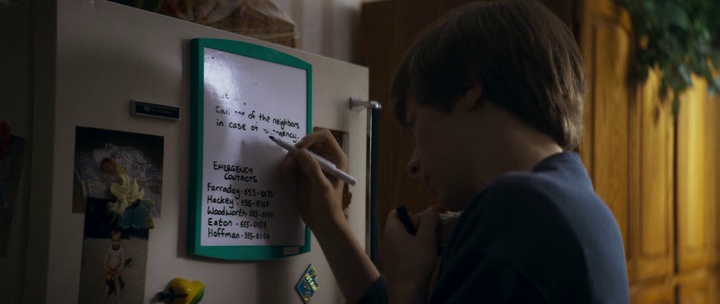 of the neighbors
in case of
EMERGENCY
CONTACTS
Farraday-555-0172
Hackey-555-0167
Woodworth-555-0199
Eaton - 555-0183
Hoffman-555-0132